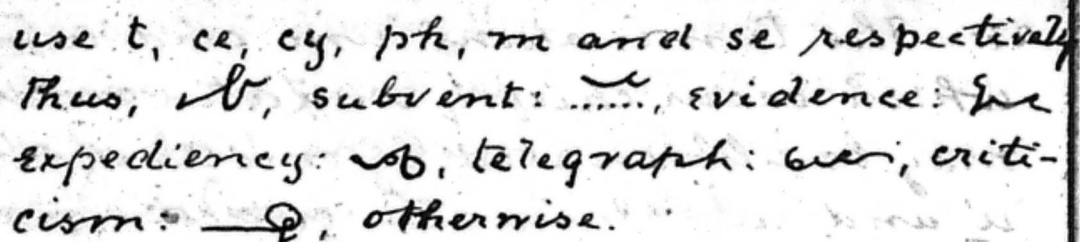 use t, ce, cy, ph, m and se respectively
Thus, , subvent: ......, evidence:
Expediency: , telegraph: , criti-
cism: , otherwise.